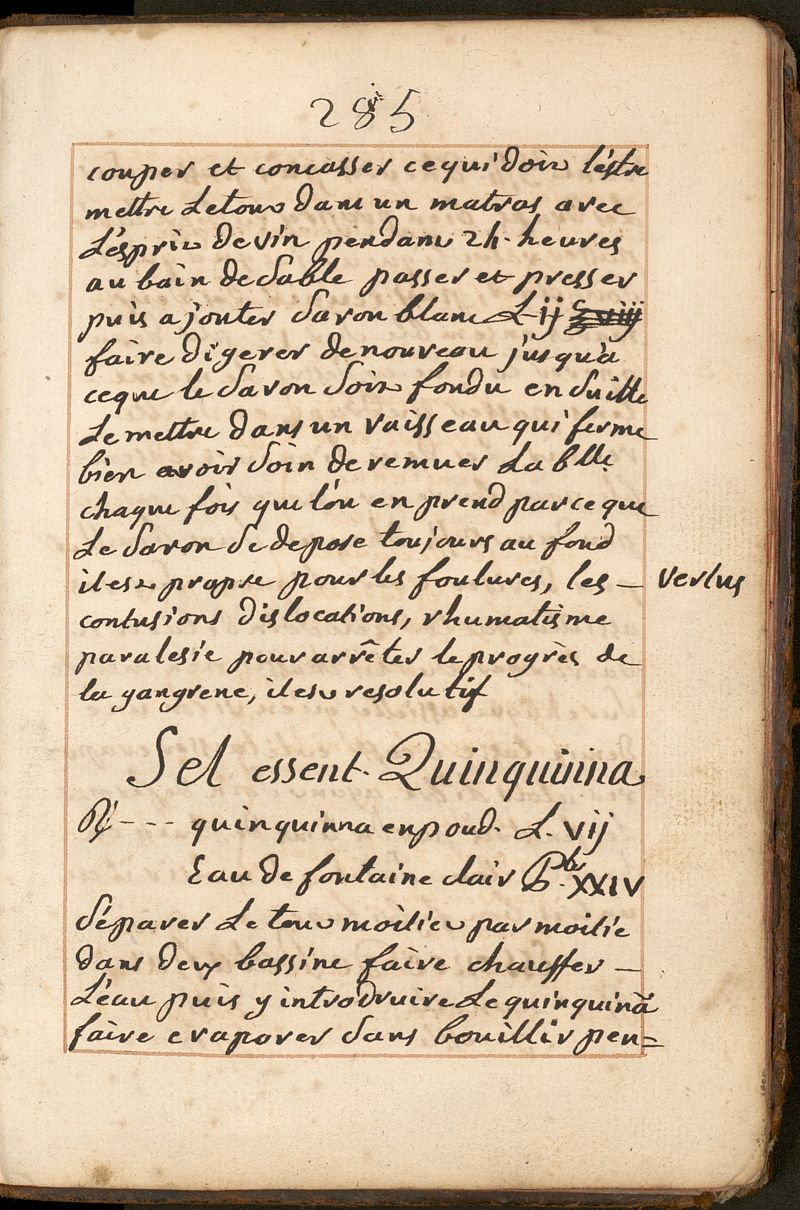 285
couper et concasser cequi doit l'éstre
mettre Le tout dans un matras avec
L'ésprit de vin pendant 24. heures
au bain de Sable passer et presser
puis ajouter Savon blanc L. ij ℥ viij
faire digerer denouveau jusqu'a
ceque le Savon Soit fondu en Suitte
Le mettre dans un vaisseau qui ferme
bien avoir Soin de remuer La blle
chaque fois que l'on en prend parce que
Le Savon Se depose toujours au fond
il est propre pour les foulures, les — vertus
contusions dislocations, rhumatisme
paralesie pour arrêter le progrès de
la gangrene, il est resolutif
Sel essent. Quinquinna
℞ --- quinquinna en poud. L. vij
Eau de fontaine clair Pbs. XXIV
Séparer Le tout moitié par moitié
dans deux bassine faire chauffer —
L'éau puis y introduire Le quinquina
faire evaporer Sans bouillir pen=